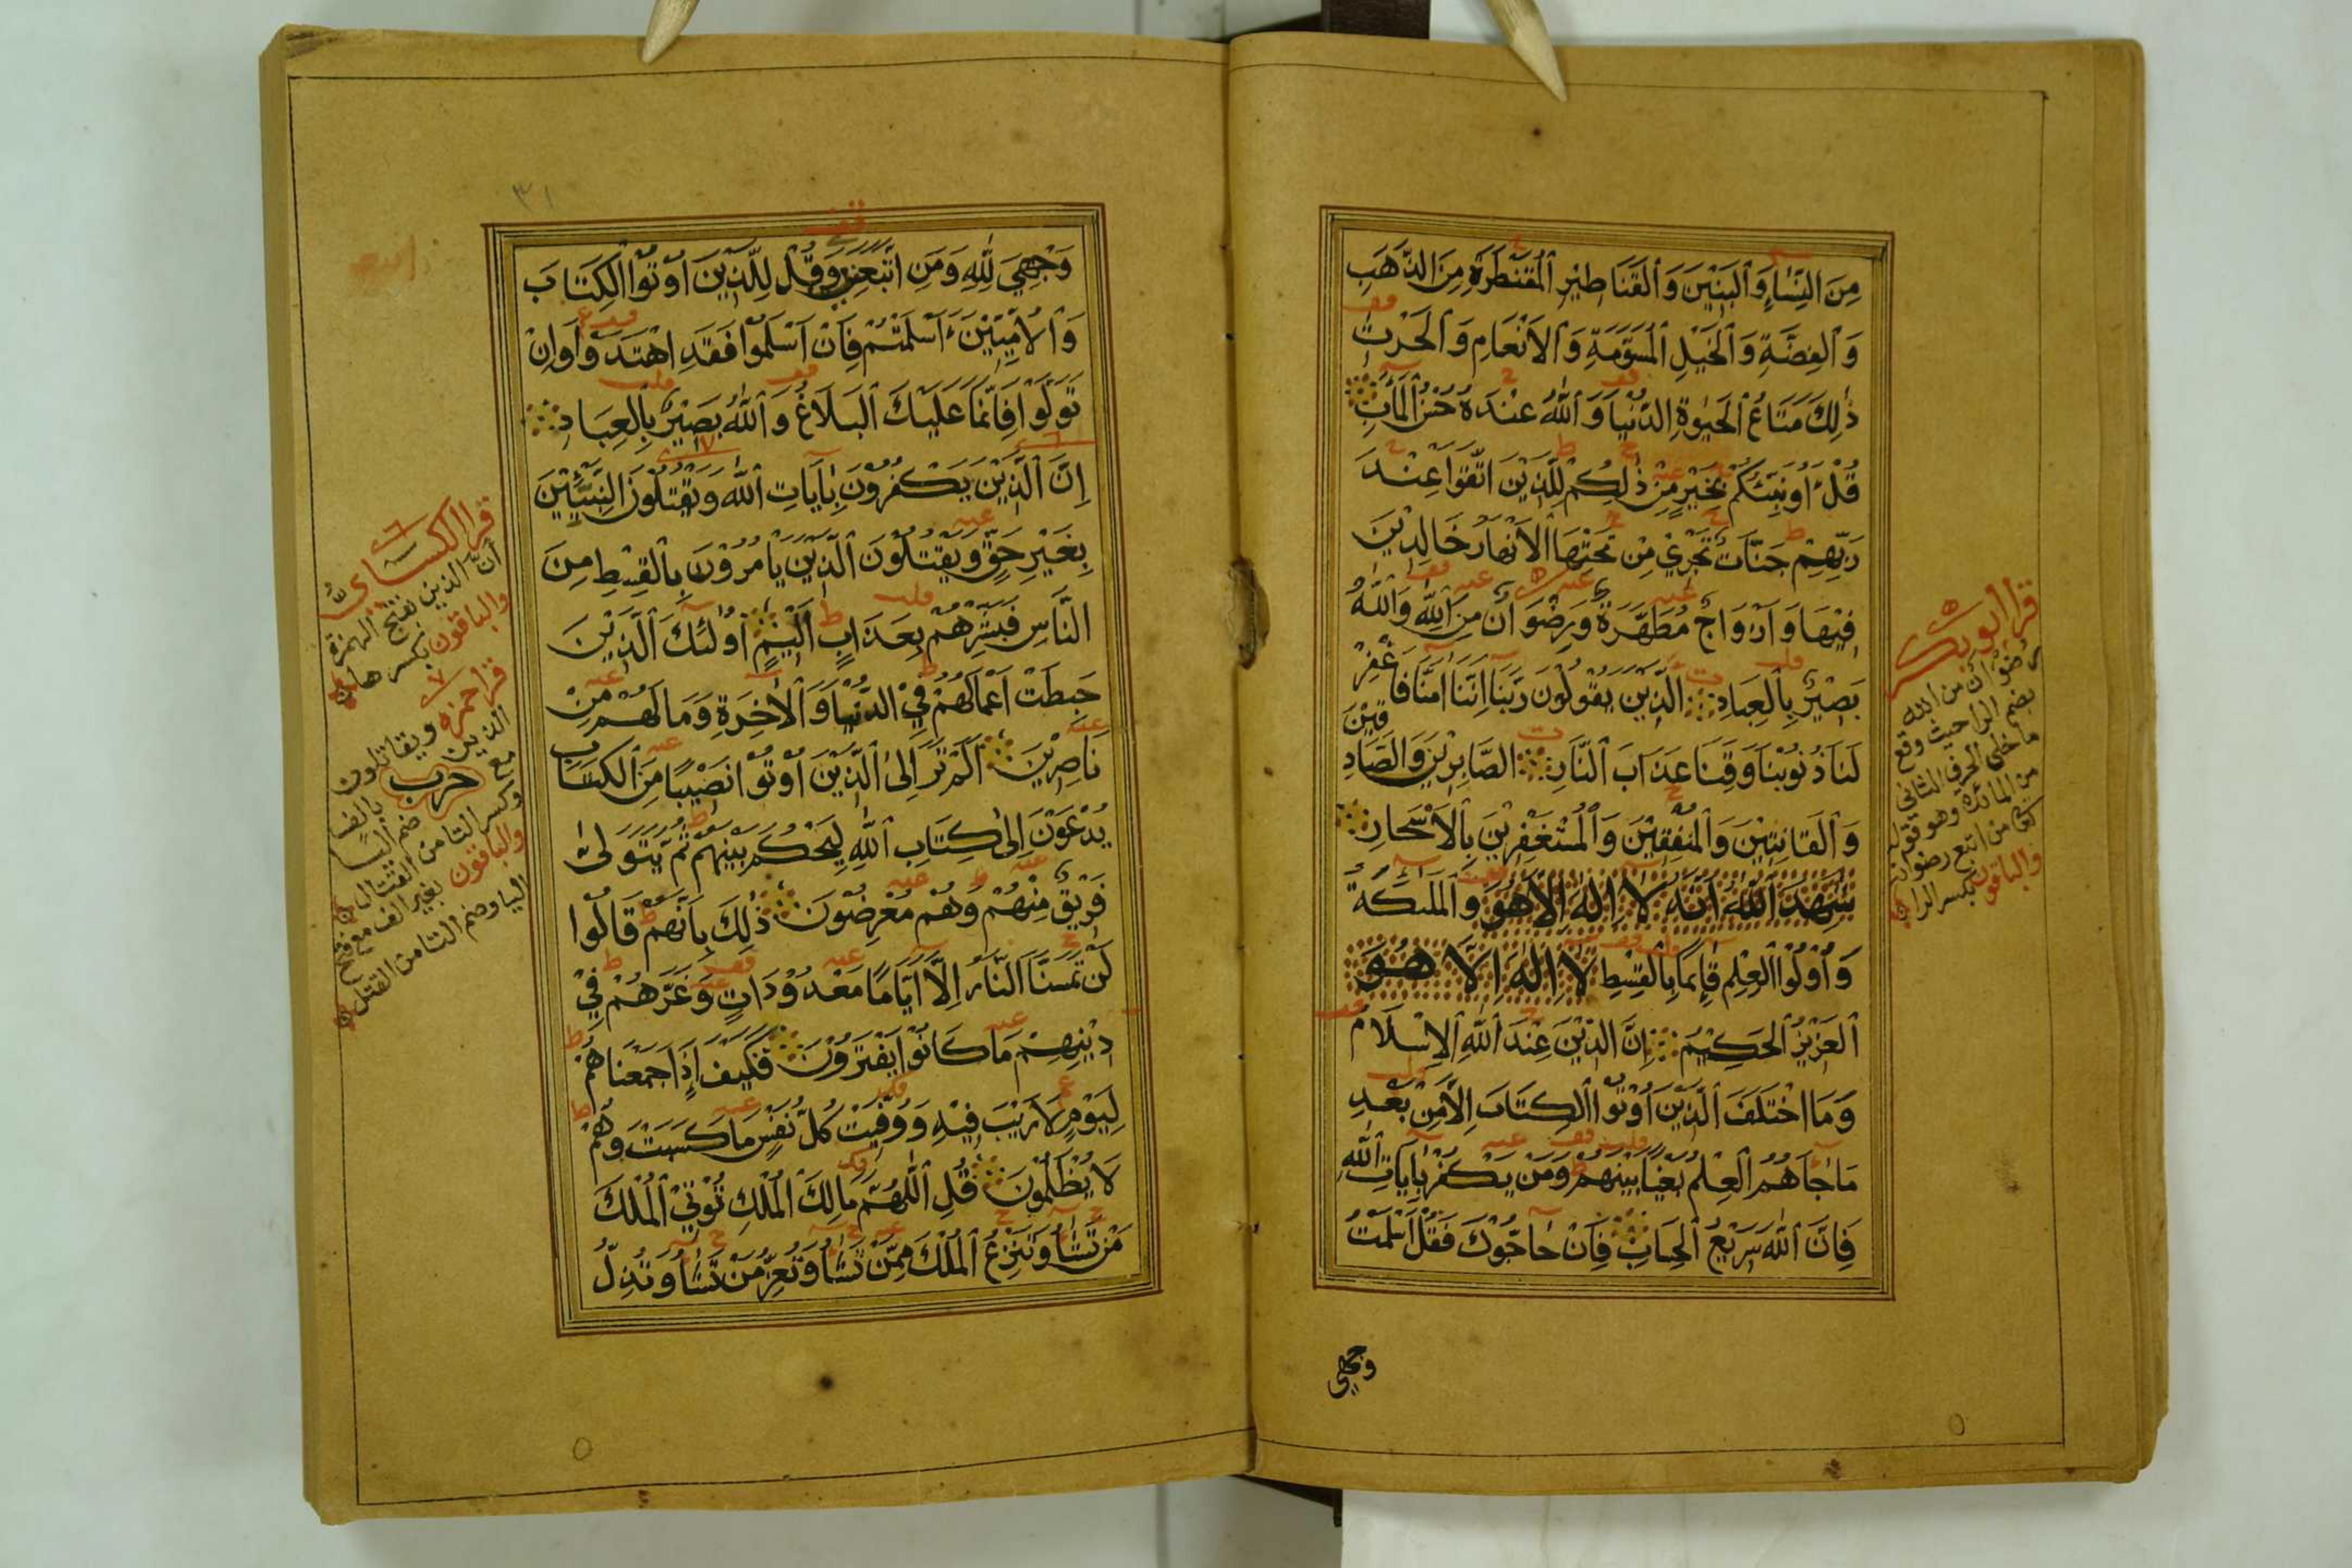 مِنَ النِّسَاءِ وَالْبَنِيْنَ وَالْقَنَاطِيْرِ الْمُقَنْطَرَةِ مِنَ الذَّهَبِ
وَالْفِضَّةِ وَالْخَيْلِ الْمُسَوَّمَةِ وَالْاَنْعَامِ وَالْحَرْثِ
ذٰلِكَ مَتَاعُ الْحَيٰوةِ الدُّنْيَا وَاللّٰهُ عِنْدَهُ حُسْنُ الْمَاٰبِ
قُلْ ءَاُونَبِّئُكُمْ بِخَيْرٍ مِنْ ذٰلِكُمْ لِلَّذِيْنَ اتَّقَوْا عِنْدَ
رَبِّهِمْ جَنَّاتٌ تَجْرِيْ مِنْ تَحْتِهَا الْاَنْهَارُ خَالِدِيْنَ
فِيْهَا وَاَزْوَاجٌ مُطَهَّرَةٌ وَرِضْوَانٌ مِنَ اللّٰهِ وَاللّٰهُ
بَصِيْرٌ بِالْعِبَادِ الَّذِيْنَ يَقُوْلُوْنَ رَبَّنَا اِنَّنَا اٰمَنَّا فَاغْفِرْ
لَنَا ذُنُوْبَنَا وَقِنَا عَذَابَ النَّارِ الصَّابِرِيْنَ وَالصَّادِقِيْنَ
وَالْقَانِتِيْنَ وَالْمُنْفِقِيْنَ وَالْمُسْتَغْفِرِيْنَ بِالْاَسْحَارِ
شَهِدَ اللّٰهُ اَنَّهُ لَا اِلٰهَ اِلَّا هُوَ وَالْمَلٰئِكَةُ
وَاُولُوا الْعِلْمِ قَائِمًا بِالْقِسْطِ لَا اِلٰهَ اِلَّا هُوَ
الْعَزِيْزُ الْحَكِيْمُ اِنَّ الدِّيْنَ عِنْدَ اللّٰهِ الْاِسْلَامُ
وَمَا اخْتَلَفَ الَّذِيْنَ اُوْتُوا الْكِتَابَ اِلَّا مِنْ بَعْدِ
مَا جَاءَهُمُ الْعِلْمُ بَغْيًا بَيْنَهُمْ وَمَنْ يَكْفُرْ بِاٰيَاتِ اللّٰهِ
فَاِنَّ اللّٰهَ سَرِيْعُ الْحِسَابِ فَاِنْ حَاجُّوْكَ فَقُلْ اَسْلَمْتُ
وجهي
قرا ابو بكر
رُضوان من الله
بضم الرا حيث وقع
ما خلى الحرف الثاني
من المائدة وهو قوله
تعالى من اتبع رضوانه
والباقون بكسر الرا
٣١
وَجْهِيَ لِلّٰهِ وَمَنِ اتَّبَعَنِ وَقُلْ لِلَّذِيْنَ اُوْتُوا الْكِتَابَ
وَالْاُمِّيِّيْنَ ءَاَسْلَمْتُمْ فَاِنْ اَسْلَمُوْا فَقَدِ اهْتَدَوْا وَاِنْ
تَوَلَّوْا فَاِنَّمَا عَلَيْكَ الْبَلَاغُ وَاللّٰهُ بَصِيْرٌ بِالْعِبَادِ
اِنَّ الَّذِيْنَ يَكْفُرُوْنَ بِاٰيَاتِ اللّٰهِ وَيَقْتُلُوْنَ النَّبِيِّيْنَ
بِغَيْرِ حَقٍّ وَيَقْتُلُوْنَ الَّذِيْنَ يَاْمُرُوْنَ بِالْقِسْطِ مِنَ
النَّاسِ فَبَشِّرْهُمْ بِعَذَابٍ اَلِيْمٍ اُولٰئِكَ الَّذِيْنَ
حَبِطَتْ اَعْمَالُهُمْ فِي الدُّنْيَا وَالْاٰخِرَةِ وَمَا لَهُمْ مِنْ
نَاصِرِيْنَ اَلَمْ تَرَ اِلَى الَّذِيْنَ اُوْتُوْا نَصِيْبًا مِنَ الْكِتَابِ
يُدْعَوْنَ اِلٰى كِتَابِ اللّٰهِ لِيَحْكُمَ بَيْنَهُمْ ثُمَّ يَتَوَلّٰى
فَرِيْقٌ مِنْهُمْ وَهُمْ مُعْرِضُوْنَ ذٰلِكَ بِاَنَّهُمْ قَالُوْا
لَنْ تَمَسَّنَا النَّارُ اِلَّا اَيَّامًا مَعْدُوْدَاتٍ وَغَرَّهُمْ فِيْ
دِيْنِهِمْ مَا كَانُوْا يَفْتَرُوْنَ فَكَيْفَ اِذَا جَمَعْنَاهُمْ
لِيَوْمٍ لَا رَيْبَ فِيْهِ وَوُفِّيَتْ كُلُّ نَفْسٍ مَا كَسَبَتْ وَهُمْ
لَا يُظْلَمُوْنَ قُلِ اللّٰهُمَّ مَالِكَ الْمُلْكِ تُؤْتِي الْمُلْكَ
مَنْ تَشَاءُ وَتَنْزِعُ الْمُلْكَ مِمَّنْ تَشَاءُ وَتُعِزُّ مَنْ تَشَاءُ وَتُذِلُّ
قرا الكسائى
أنَّ الذين بفتح الهمزة
والباقون بكسرها
قرا حمزه ويقاتلون
الذين
مع حرب بالف
ضم اليا
وكسر التا من القتال
والباقون بغير الف مع فتح
اليا وضم التا من القتل